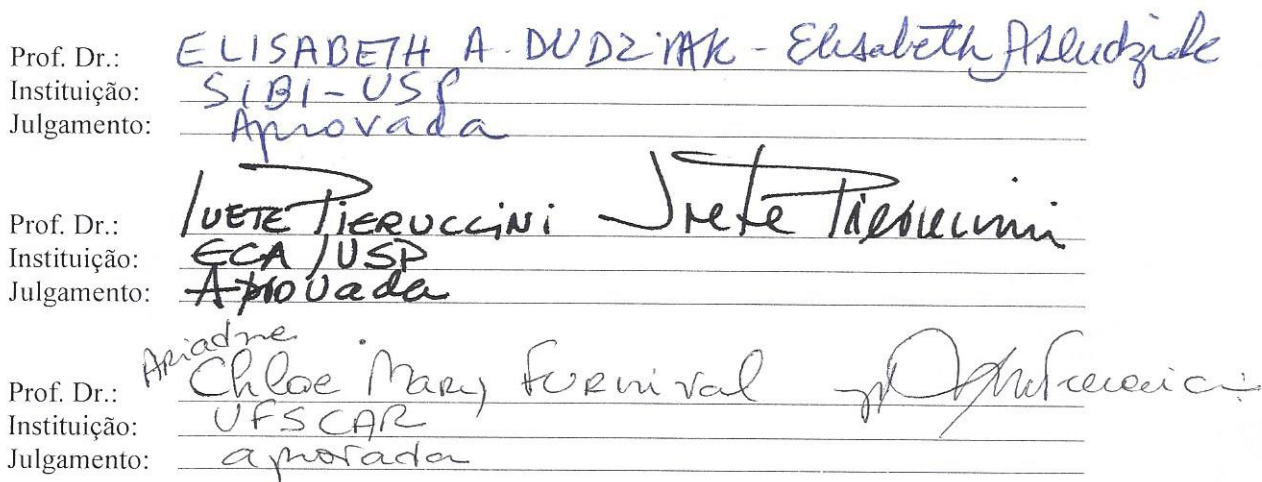 Prof. Dr.: ELISABETH A. DUDZIAK - Elisabeth Dudziak
Instituição: SIBI-USP
Julgamento: Aprovada
Prof. Dr.: IVETE PIERUCCINI Ivete Pieruccini
Instituição: ECA/USP
Julgamento: Aprovada
Ariadne
Prof. Dr.: Chloe Mary Furnival
Instituição: UFSCAR
Julgamento: aprovada